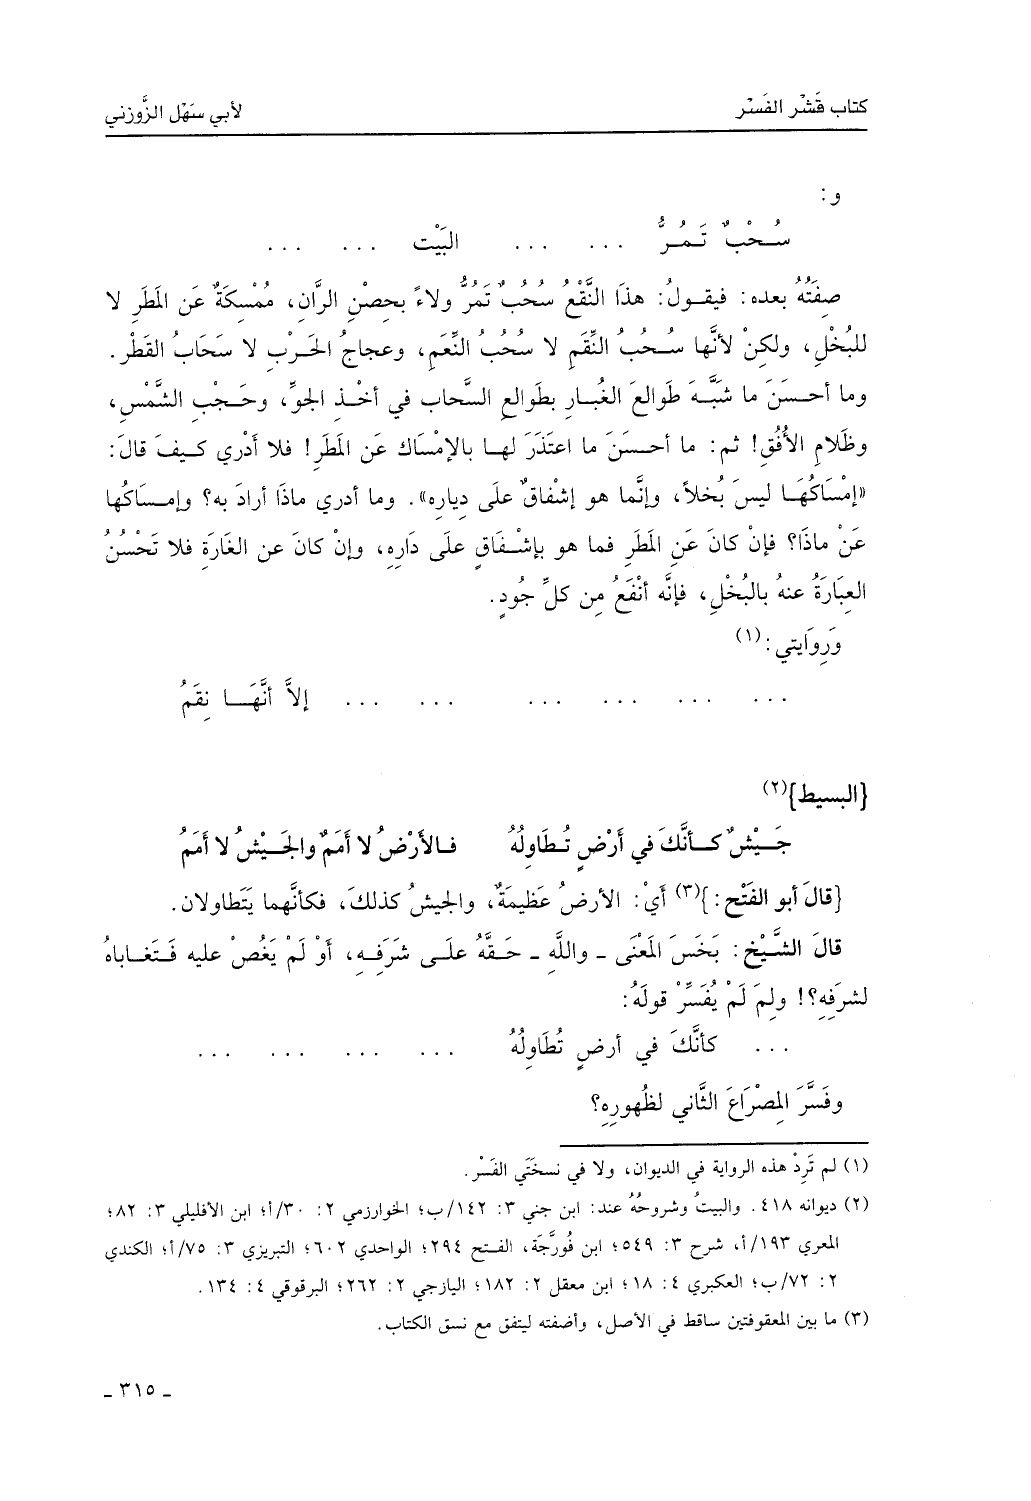 كتاب قَشْر الفَسْر
لأبي سَهْل الزَّوْزني
و:
سُحْبٌ تَمُرُّ ... ... البَيْت ... ...
صِفَتُهُ بعده: فيقولُ: هذَا النَّقْعُ سُحُبٌ تَمُرُّ ولاءً بحِصْنِ الرَّانِ، مُمْسِكَةٌ عَنِ المَطَرِ لا
للبُخْلِ، ولكِنْ لأنَّها سُحُبُ النِّقَمِ لا سُحُبُ النِّعَمِ، وعجاجُ الحَرْبِ لا سَحَابُ القَطْر.
وما أحسَنَ ما شَبَّهَ طَوالعَ الغُبارِ بطَوالعِ السَّحاب في أخْذِ الجوِّ، وحَجْبِ الشَّمْسِ،
وظَلامِ الأُفُقِ! ثم: ما أحسَنَ ما اعتَذَرَ لها بالإمْسَاك عَنِ المَطَرِ! فلا أدْري كيفَ قالَ:
«إمْسَاكُهَا ليسَ بُخلاً، وإنَّما هو إشْفاقٌ علَى دِيارِه». وما أدري ماذَا أرادَ به؟ وإمسَاكُها
عَنْ ماذَا؟ فإنْ كانَ عَنِ المَطَرِ فما هو بإشْفاقٍ علَى دَارِهِ، وإنْ كانَ عن الغَارَةِ فلا تَحْسُنُ
العِبَارَةُ عنهُ بالبُخْلِ، فإنَّه أنْفَعُ مِن كلِّ جُودٍ.
وَرِوَايتي:(١)
... ... ... ... ... ... إلاَّ أنَّهَا نِقَمُ
{البسيط}(٢)
جَيْشٌ كأنَّكَ في أَرْضٍ تُطَاوِلُهُ فالأَرْضُ لا أَمَمٌ والجَيْشُ لا أَمَمُ
{قالَ أبو الفَتْح:}(٣) أيْ: الأرضُ عَظيمَةٌ، والجيشُ كذلكَ، فكأنَّهما يَتَطاولان.
قالَ الشَّيْخ: بَخَسَ المَعْنَى ـ واللَّهِ ـ حَقَّهُ علَى شَرَفِهِ، أَوْ لَمْ يَغُصْ عليه فَتَغاباهُ
لشرَفِهِ؟! ولِمَ لَمْ يُفَسِّرْ قولَهُ:
... كأنَّكَ في أرضٍ تُطَاوِلُهُ ... ... ... ...
وفَسَّرَ المِصْرَاعَ الثَّاني لظُهورِهِ؟
(١) لم تَرِدْ هذه الرواية في الديوان، ولا في نسخَتَي الفَسْر.
(٢) ديوانه ٤١٨. والبيتُ وشروحُهُ عند: ابن جني ٣: ١٤٢/ب؛ الخوارزمي ٢: ٣٠/أ؛ ابن الأفليلي ٣: ٨٢؛
المعري ١٩٣/أ، شرح ٣: ٥٤٩؛ ابن فُورَّجَة، الفتح ٢٩٤؛ الواحدي ٦٠٢؛ التبريزي ٣: ٧٥/أ؛ الكندي
٢: ٧٢/ب؛ العكبري ٤: ١٨؛ ابن معقل ٢: ١٨٢؛ اليازجي ٢: ٢٦٢؛ البرقوقي ٤: ١٣٤.
(٣) ما بين المعقوفتين ساقط في الأصل، وأضفته ليتفق مع نسق الكتاب.
ـ ٣١٥ ـ